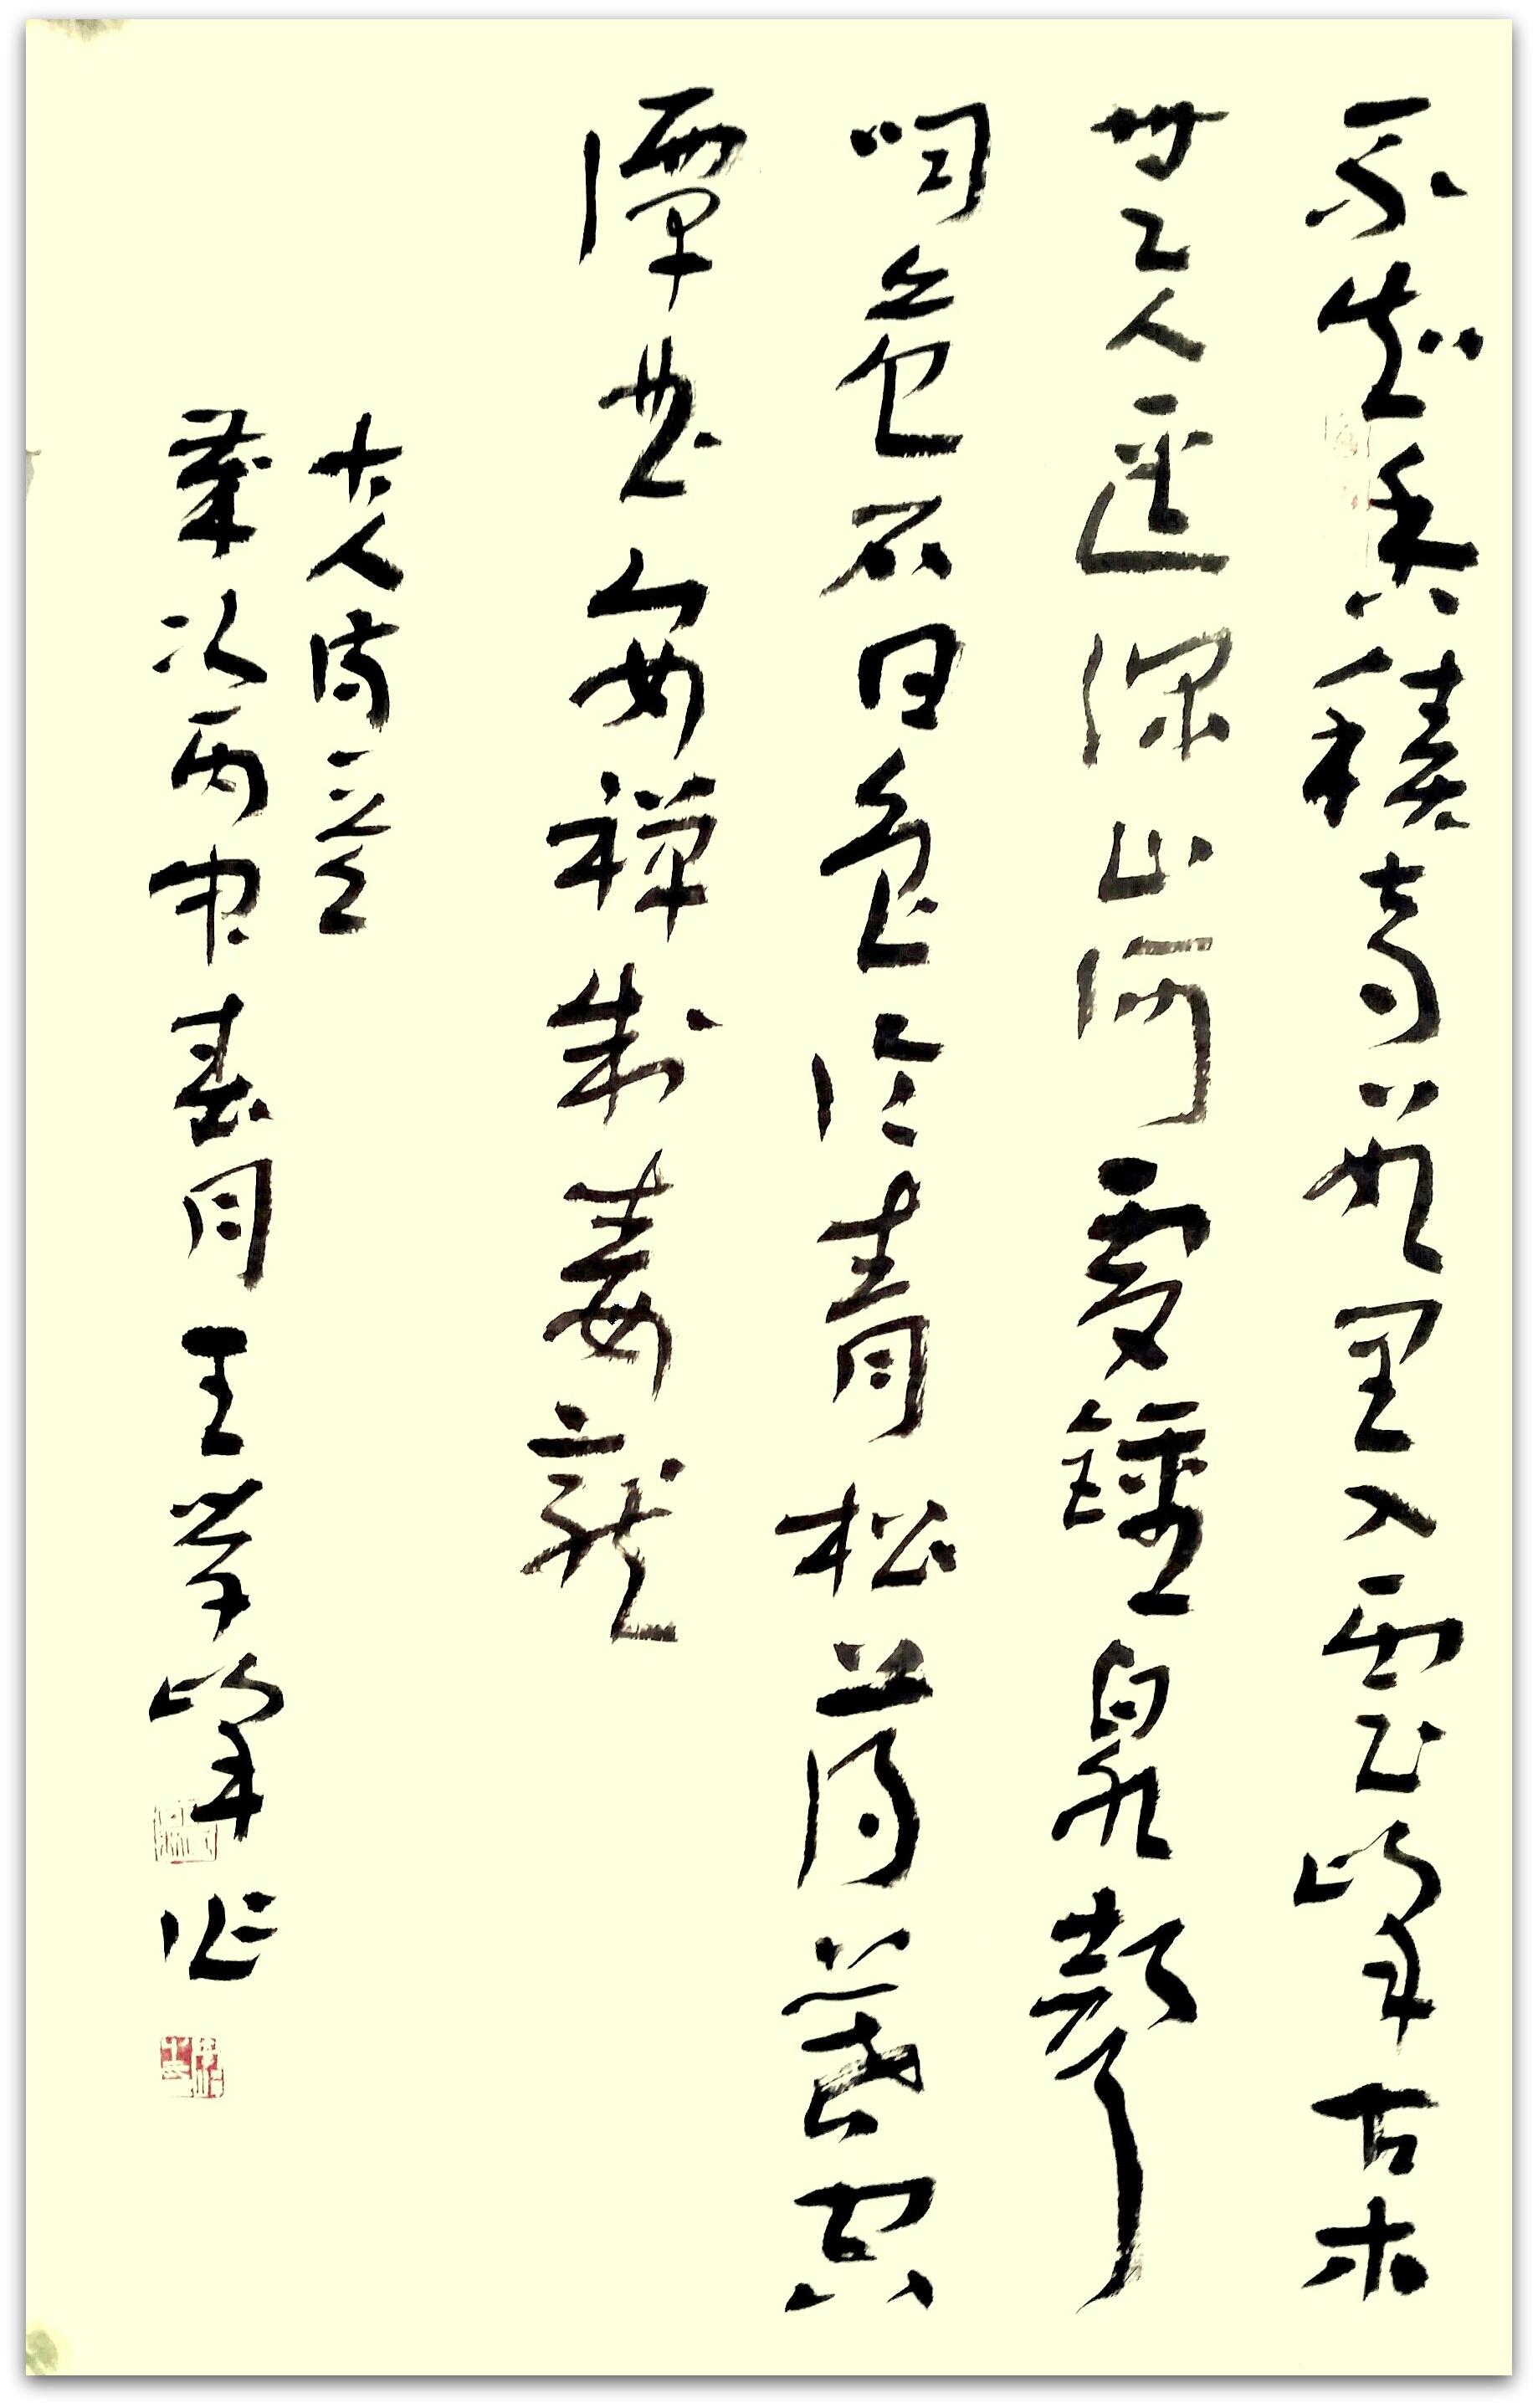 不知香積寺數里入雲峰古木
無人逕深山何處鐘泉聲
咽危石日色冷青松薄暮空
潭曲安禪制毒龍
古人詩
歲次丙申春月王學峰作